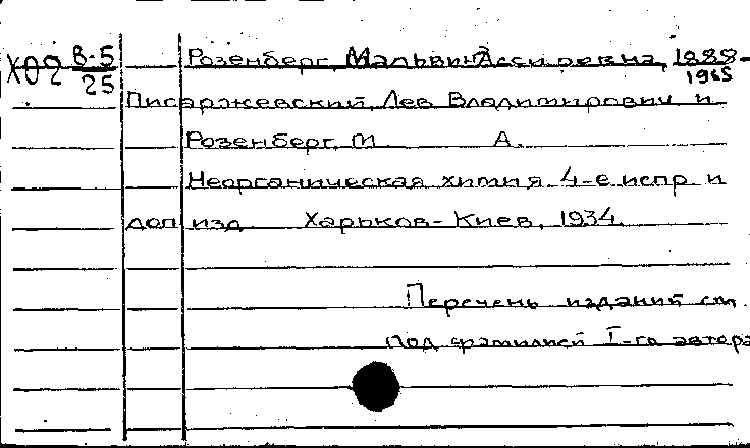 Х02 В-5 Розенберг, Мальвина 1888-
25 1965
Писаржевский, Лев Владимирович и
Розенберг, М А.
Неорганическая химия. 4-е испр и
доп изд Харьков-Киев, 1934.
Перечень изданий см.
под фамилией I-го автора